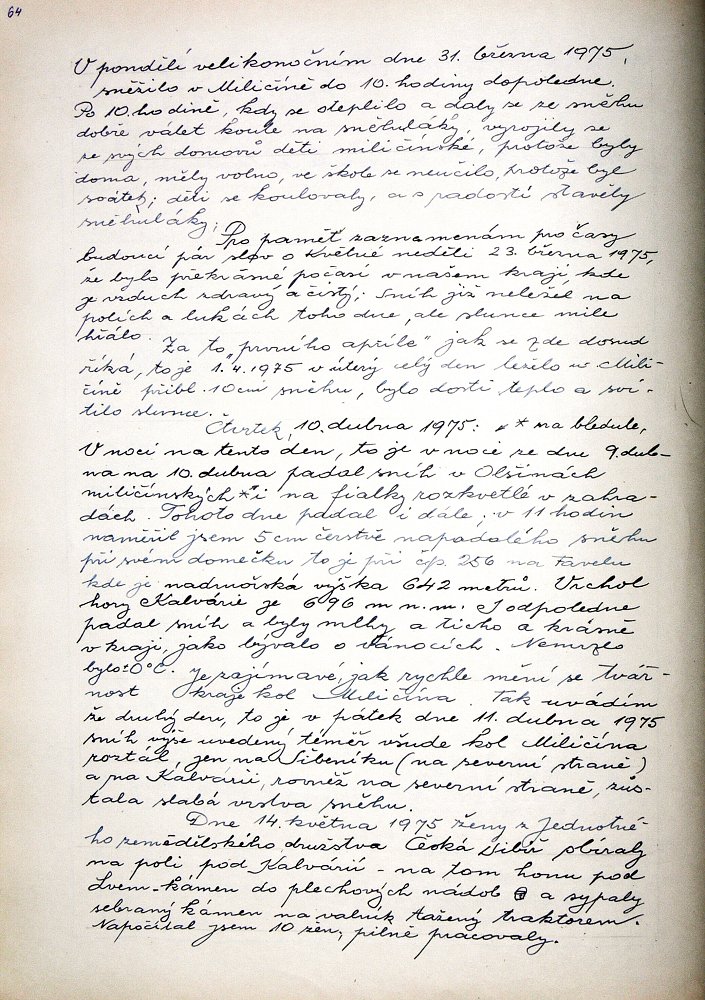 64
V pondělí velikonočním dne 31. března 1975,
sněžilo v Miličíně do 10. hodiny dopoledne.
Po 10. hodině, kdy se oteplilo a daly se ze sněhu
dobře válet koule na sněhuláky, vyrojily se
ze svých domovů děti miličínské, protože byly
doma, měly volno, ve škole se neučilo, protože byl
svátek; děti se koulovaly, a s radostí stavěly
sněhuláky.
Pro paměť zaznamenám pro časy
budoucí pár slov o Květné neděli 23. března 1975,
že bylo překrásné počasí v našem kraji, kde
je vzduch zdravý a čistý; sníh již neležel na
polích a lukách toho dne, ale slunce mile
hřálo.
Za to „prvního apríle" jak se zde dosud
říká, to je 1.4.1975 v úterý celý den leželo v Mili-
číně přibl. 10cm sněhu, bylo dosti teplo a sví-
tilo slunce.
Čtvrtek, 10. dubna 1975: * na bledule,
V noci na tento den, to je v noci ze dne 9. dub-
na na 10. dubna padal sníh v Olšinách
miličínských * i na fialky rozkvetlé v zahra-
dách. Tohoto dne padal i dále; v 11 hodin
naměřil jsem 5 cm čerstvě napadalého sněhu
při svém domečku to je při čp. 256 na Favelu
kde je nadmořská výška 642 metrů. Vrchol
hory Kalvárie je 696 m n. m. I odpoledne
padal sníh a byly mlhy a ticho a krásně
v kraji, jako bývalo o vánocích. Nemrzlo
bylo ±0°C. Je zajímavé, jak rychle mění se tvář-
nost kraje kol Miličína. Tak uvádím
že druhý den, to je v pátek dne 11. dubna 1975
sníh výše uvedený téměř všude kol Miličína
roztál, jen na Šibeníku (na severní straně)
a na Kalvárii, rovněž na severní straně, zůs-
tala slabá vrstva sněhu.
Dne 14. května 1975 ženy z Jednotné-
ho zemědělského družstva Česká Sibiř sbíraly
na poli pod Kalvárií - na tom honu pod
Lvem - kámen do plechových nádob a sypaly
sebraný kámen na valník tažený traktorem.
Napočítal jsem 10 žen, pilně pracovaly.